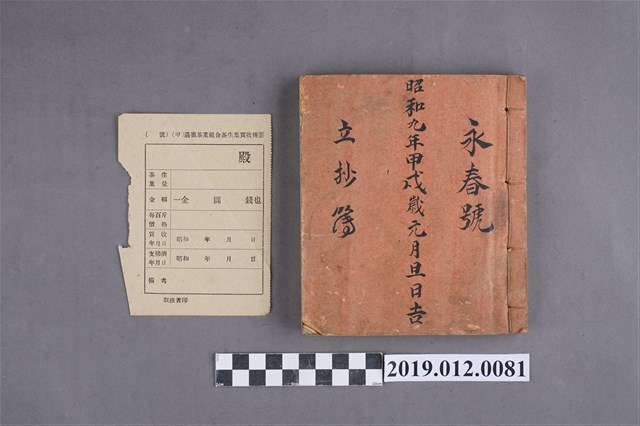 永春號
昭和九年甲戌歲元月旦日吉
立抄簿
殿
生
茶
葉量
金額
一金 圓 錢也
每百斤
價格
買收
年月日
昭和 年 月 日
支拂濟
年月日
昭和 年 月 日
備考
取扱者印
2019.012.0081